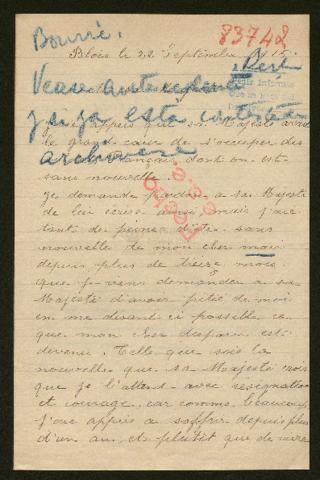 83742
Bourré.
Blois le 22 Septembre 1915
Vease antecedent
y si ya está contestada
archivese
appris que sa Majesté avait
le grand cœur de s'occuper des
français dont on est
sans nouvelle.
Je demande pardon a sa Majesté
de lui écrire ainsi mais j'ai
tant de peine d'être sans
nouvelle de mon cher mari
depuis plus de treize mois
que je viens demander a sa
Majesté d'avoir pitié de moi
en me disant si possible ce
que mon cher disparu est
devenu. Telle que sois la
nouvelle que sa Majesté crois
que je l'attend avec résignation
et courage car comme beaucoup
j'ai appris a souffrir depuis plus
d'un an, et plutôt que de vivre